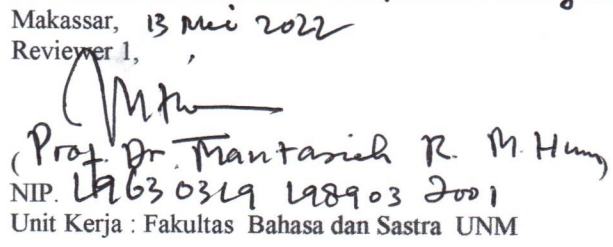 Makassar, 13 Mei 2022
Reviewer 1,
(Prof. Dr. Mantasiah R. M. Hum)
NIP. 19630319 198903 2001
Unit Kerja : Fakultas Bahasa dan Sastra UNM